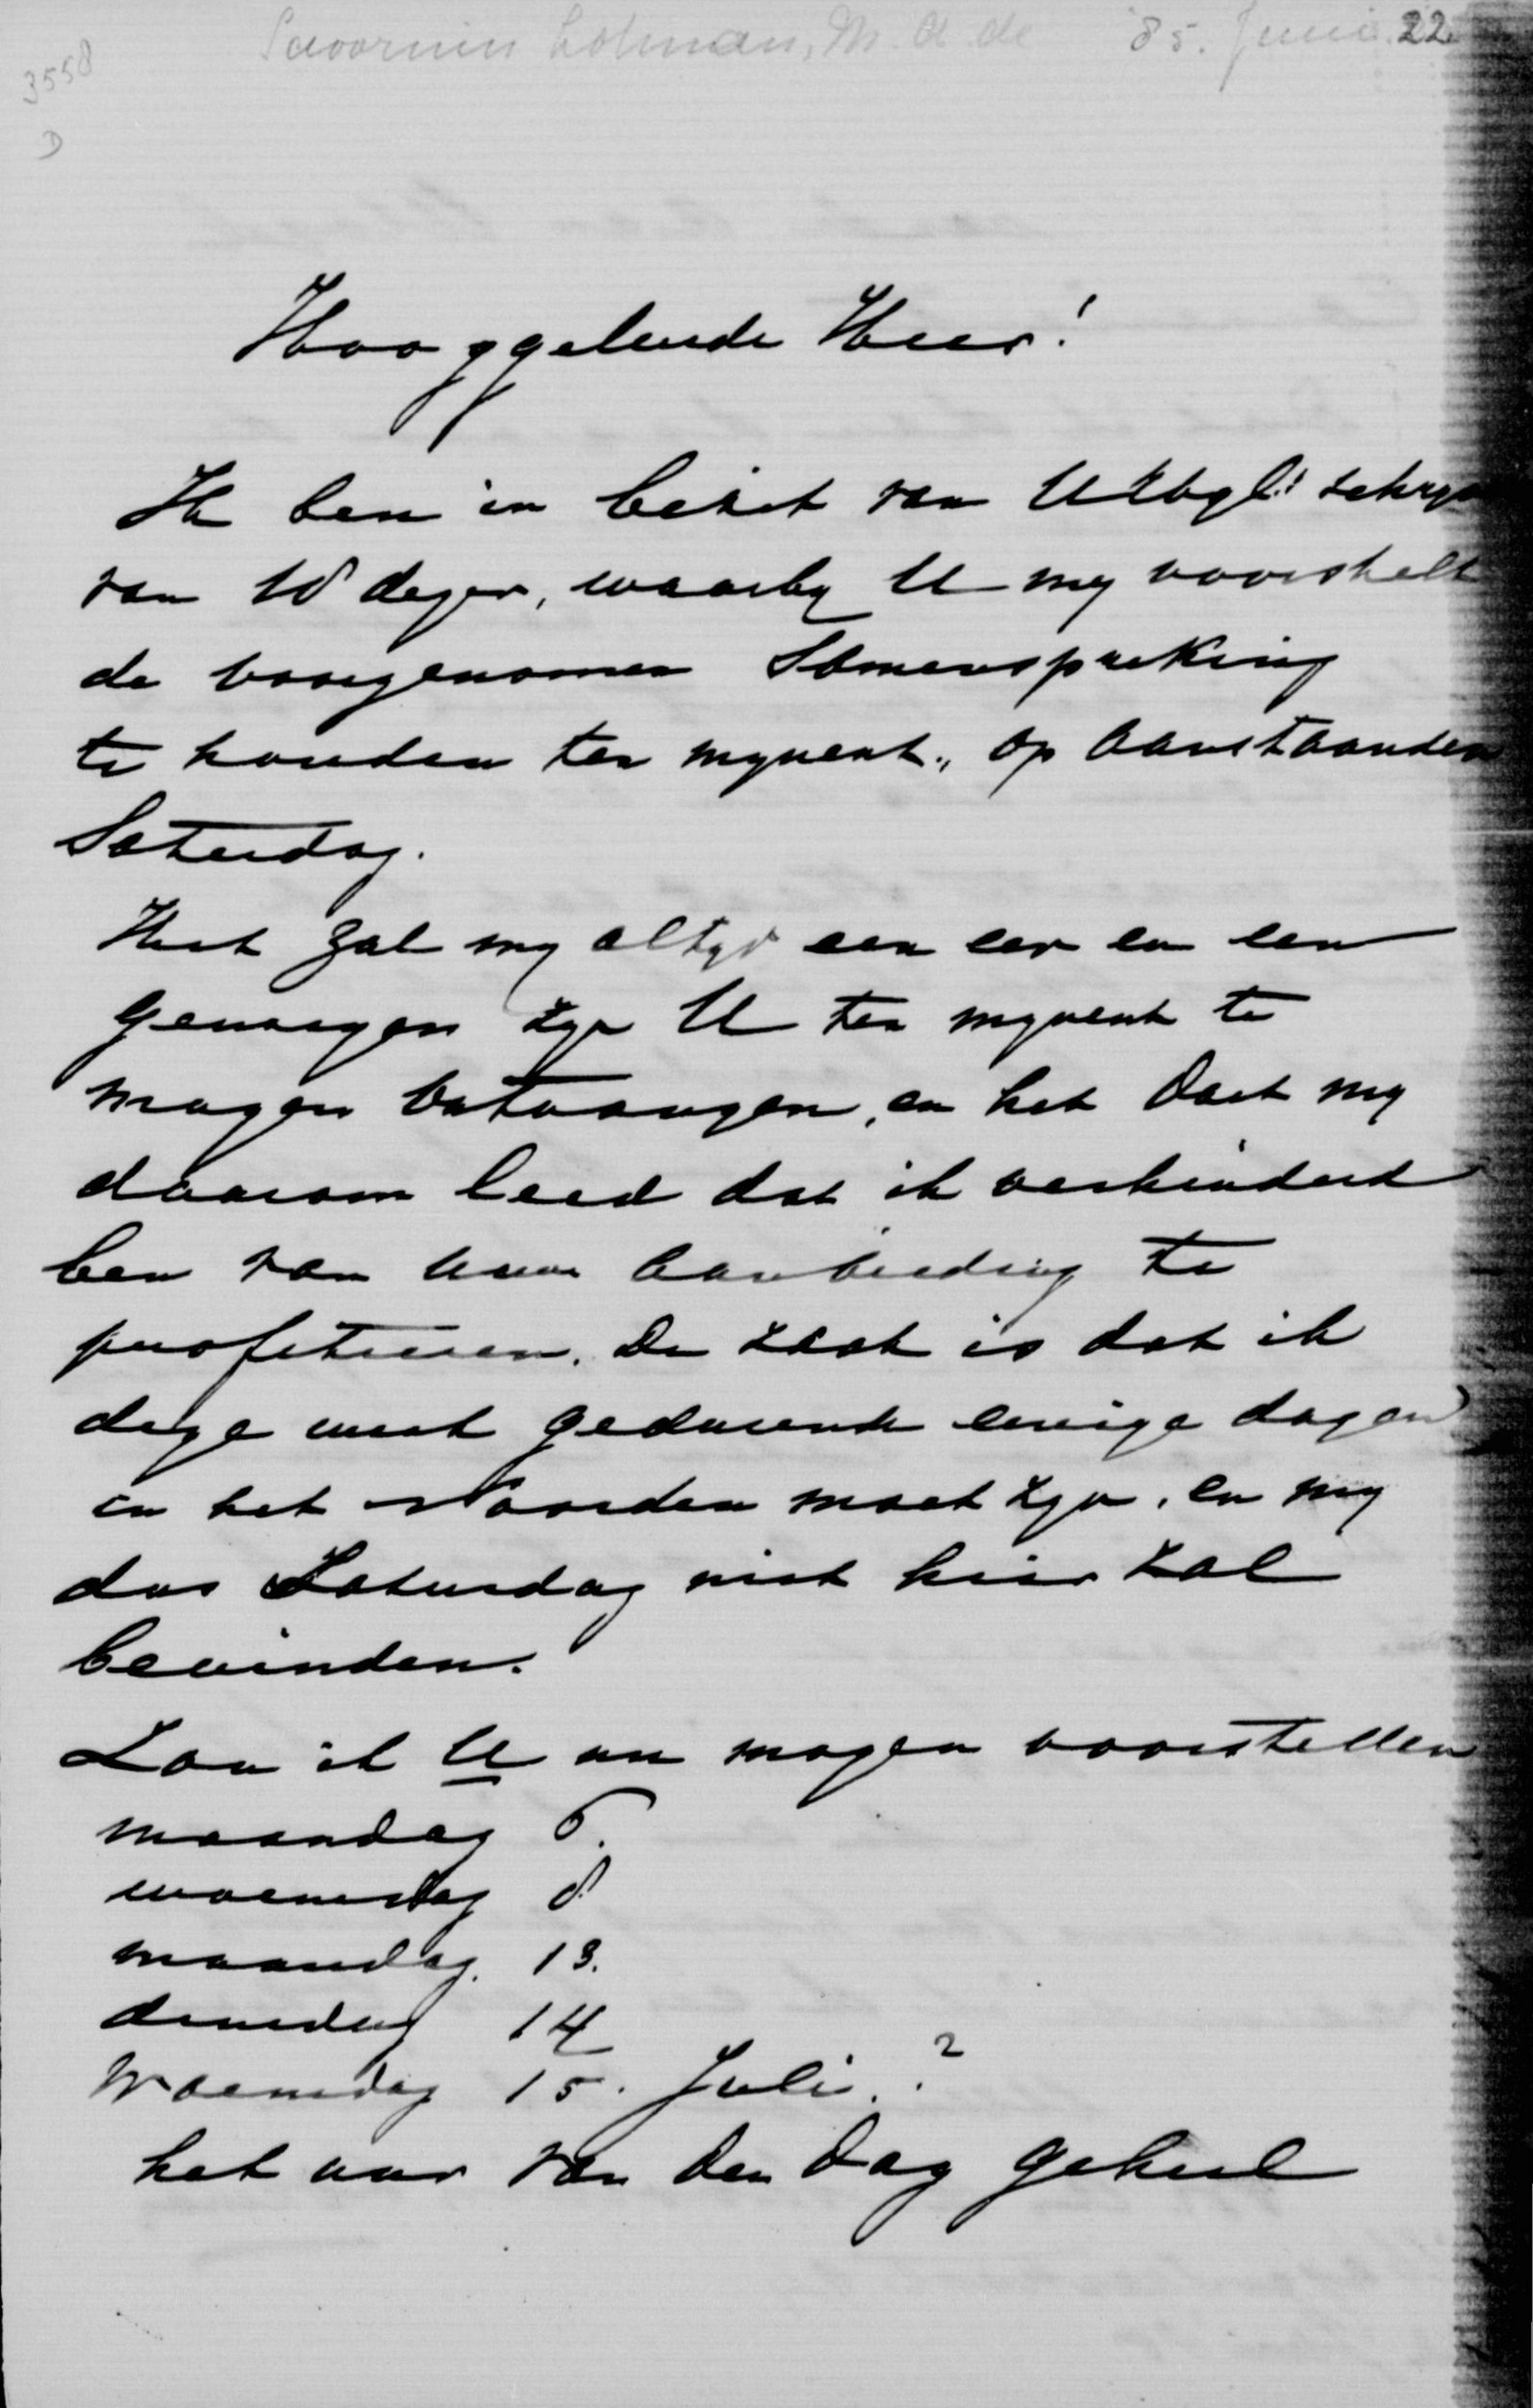 Savornin Lohman, M. A. de '85. Juni 22
3558
D
Hooggeleerde Heer!
Ik ben in bezit van UEdgl.s schryven
van 10 dezer, waarby U my voorstelt
de voorgenomen Samenspreking
te houden ten mynent, op aanstaanden
Saterdag.
Het zal my altyd een eer en een
genoegen zyn U ten mynent te
mogen ontvangen, en het doet my
daarom leed dat ik verhinderd
ben van uwe aanbieding te
profiteeren. De zaak is dat ik
deze week gedurende eenige dagen
in het Noorden moet zyn, en my
dus Zaterdag niet hier zal
bevinden.
Zou ik U nu mogen voorstellen
maandag 6.
woensdag 8
maandag. 13.
dinsdag 14
Woensdag 15. Juli.?
het uur van den dag geheel